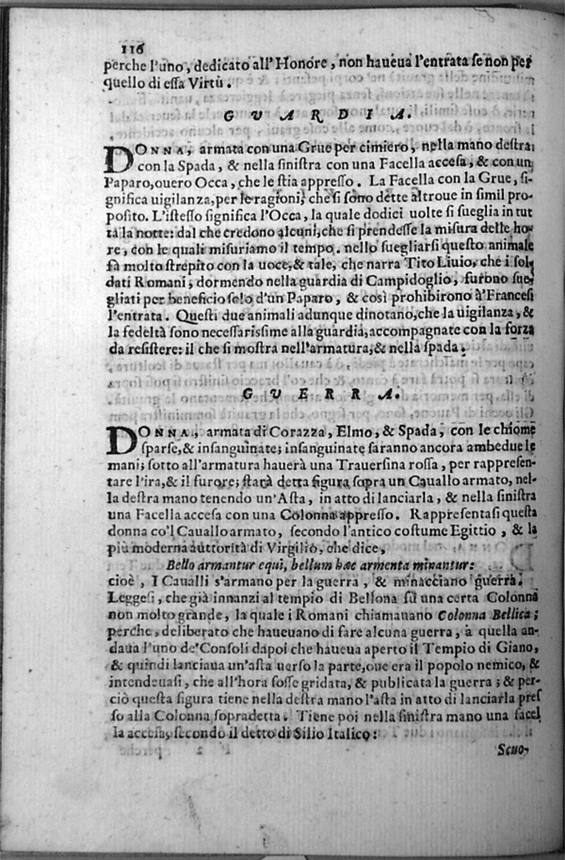 116
perche l'uno, dedicato all'Honore, non haueua l'entrata se non per
quello di essa Virtù.
GVARDIA.
DONNA, armata con una Grue per cimiero, nella mano destra
con la Spada, & nella sinistra con una Facella accesa, & con un
Paparo, ouero Occa, che le stia appresso. La Facella con la Grue, si-
gnifica uigilanza, per le ragioni, che si sono dette altroue in simil pro-
posito. L'istesso significa l'Occa, la quale dodici uolte si sueglia in tut
ta la notte: dal che credono alcuni, che si prendesse la misura delle ho-
re, con le quali misuriamo il tempo. nello suegliarsi questo animale
fà molto strepito con la uoce, & tale, che narra Tito Liuio, che i sol
dati Romani, dormendo nella guardia di Campidoglio, furono sue
gliati per beneficio solo d'un Paparo, & così prohibirono à Francesi
l'entrata. Questi due animali adunque dinotano, che la uigilanza, &
la fedeltà sono necessarissime alla guardia, accompagnate con la forza
da resistere: il che si mostra nell'armatura, & nella spada.
GVERRA.
DONNA, armata di Corazza, Elmo, & Spada, con le chiome
sparse, & insanguinate; insanguinate saranno ancora ambedue le
mani; sotto all'armatura hauerà una Trauersina rossa, per rappresen-
tare l'ira, & il furore; starà detta figura sopra un Cauallo armato, nel-
la destra mano tenendo un'Asta, in atto di lanciarla, & nella sinistra
una Facella accesa con una Colonna appresso. Rappresentasi questa
donna co'l Cauallo armato, secondo l'antico costume Egittio, & la
più moderna auttorità di Virgilio, che dice,
Bello armantur equi, bellum hæc armenta minantur:
cioè, I Caualli s'armano per la guerra, & minacciano guerra.
Leggesi, che già innanzi al tempio di Bellona fù una certa Colonna
non molto grande, la quale i Romani chiamauano Colonna Bellica;
perche, deliberato che haueuano di fare alcuna guerra, à quella an-
daua l'uno de'Consoli dapoi che haueua aperto il Tempio di Giano,
& quindi lanciaua un'asta uerso la parte, oue era il popolo nemico, &
intendeuasi, che all'hora fosse gridata, & publicata la guerra; & per-
ciò questa figura tiene nella destra mano l'asta in atto di lanciarla pres
so alla Colonna sopradetta. Tiene poi nella sinistra mano una facel
la accesa, secondo il detto di Silio Italico:
Scuo-